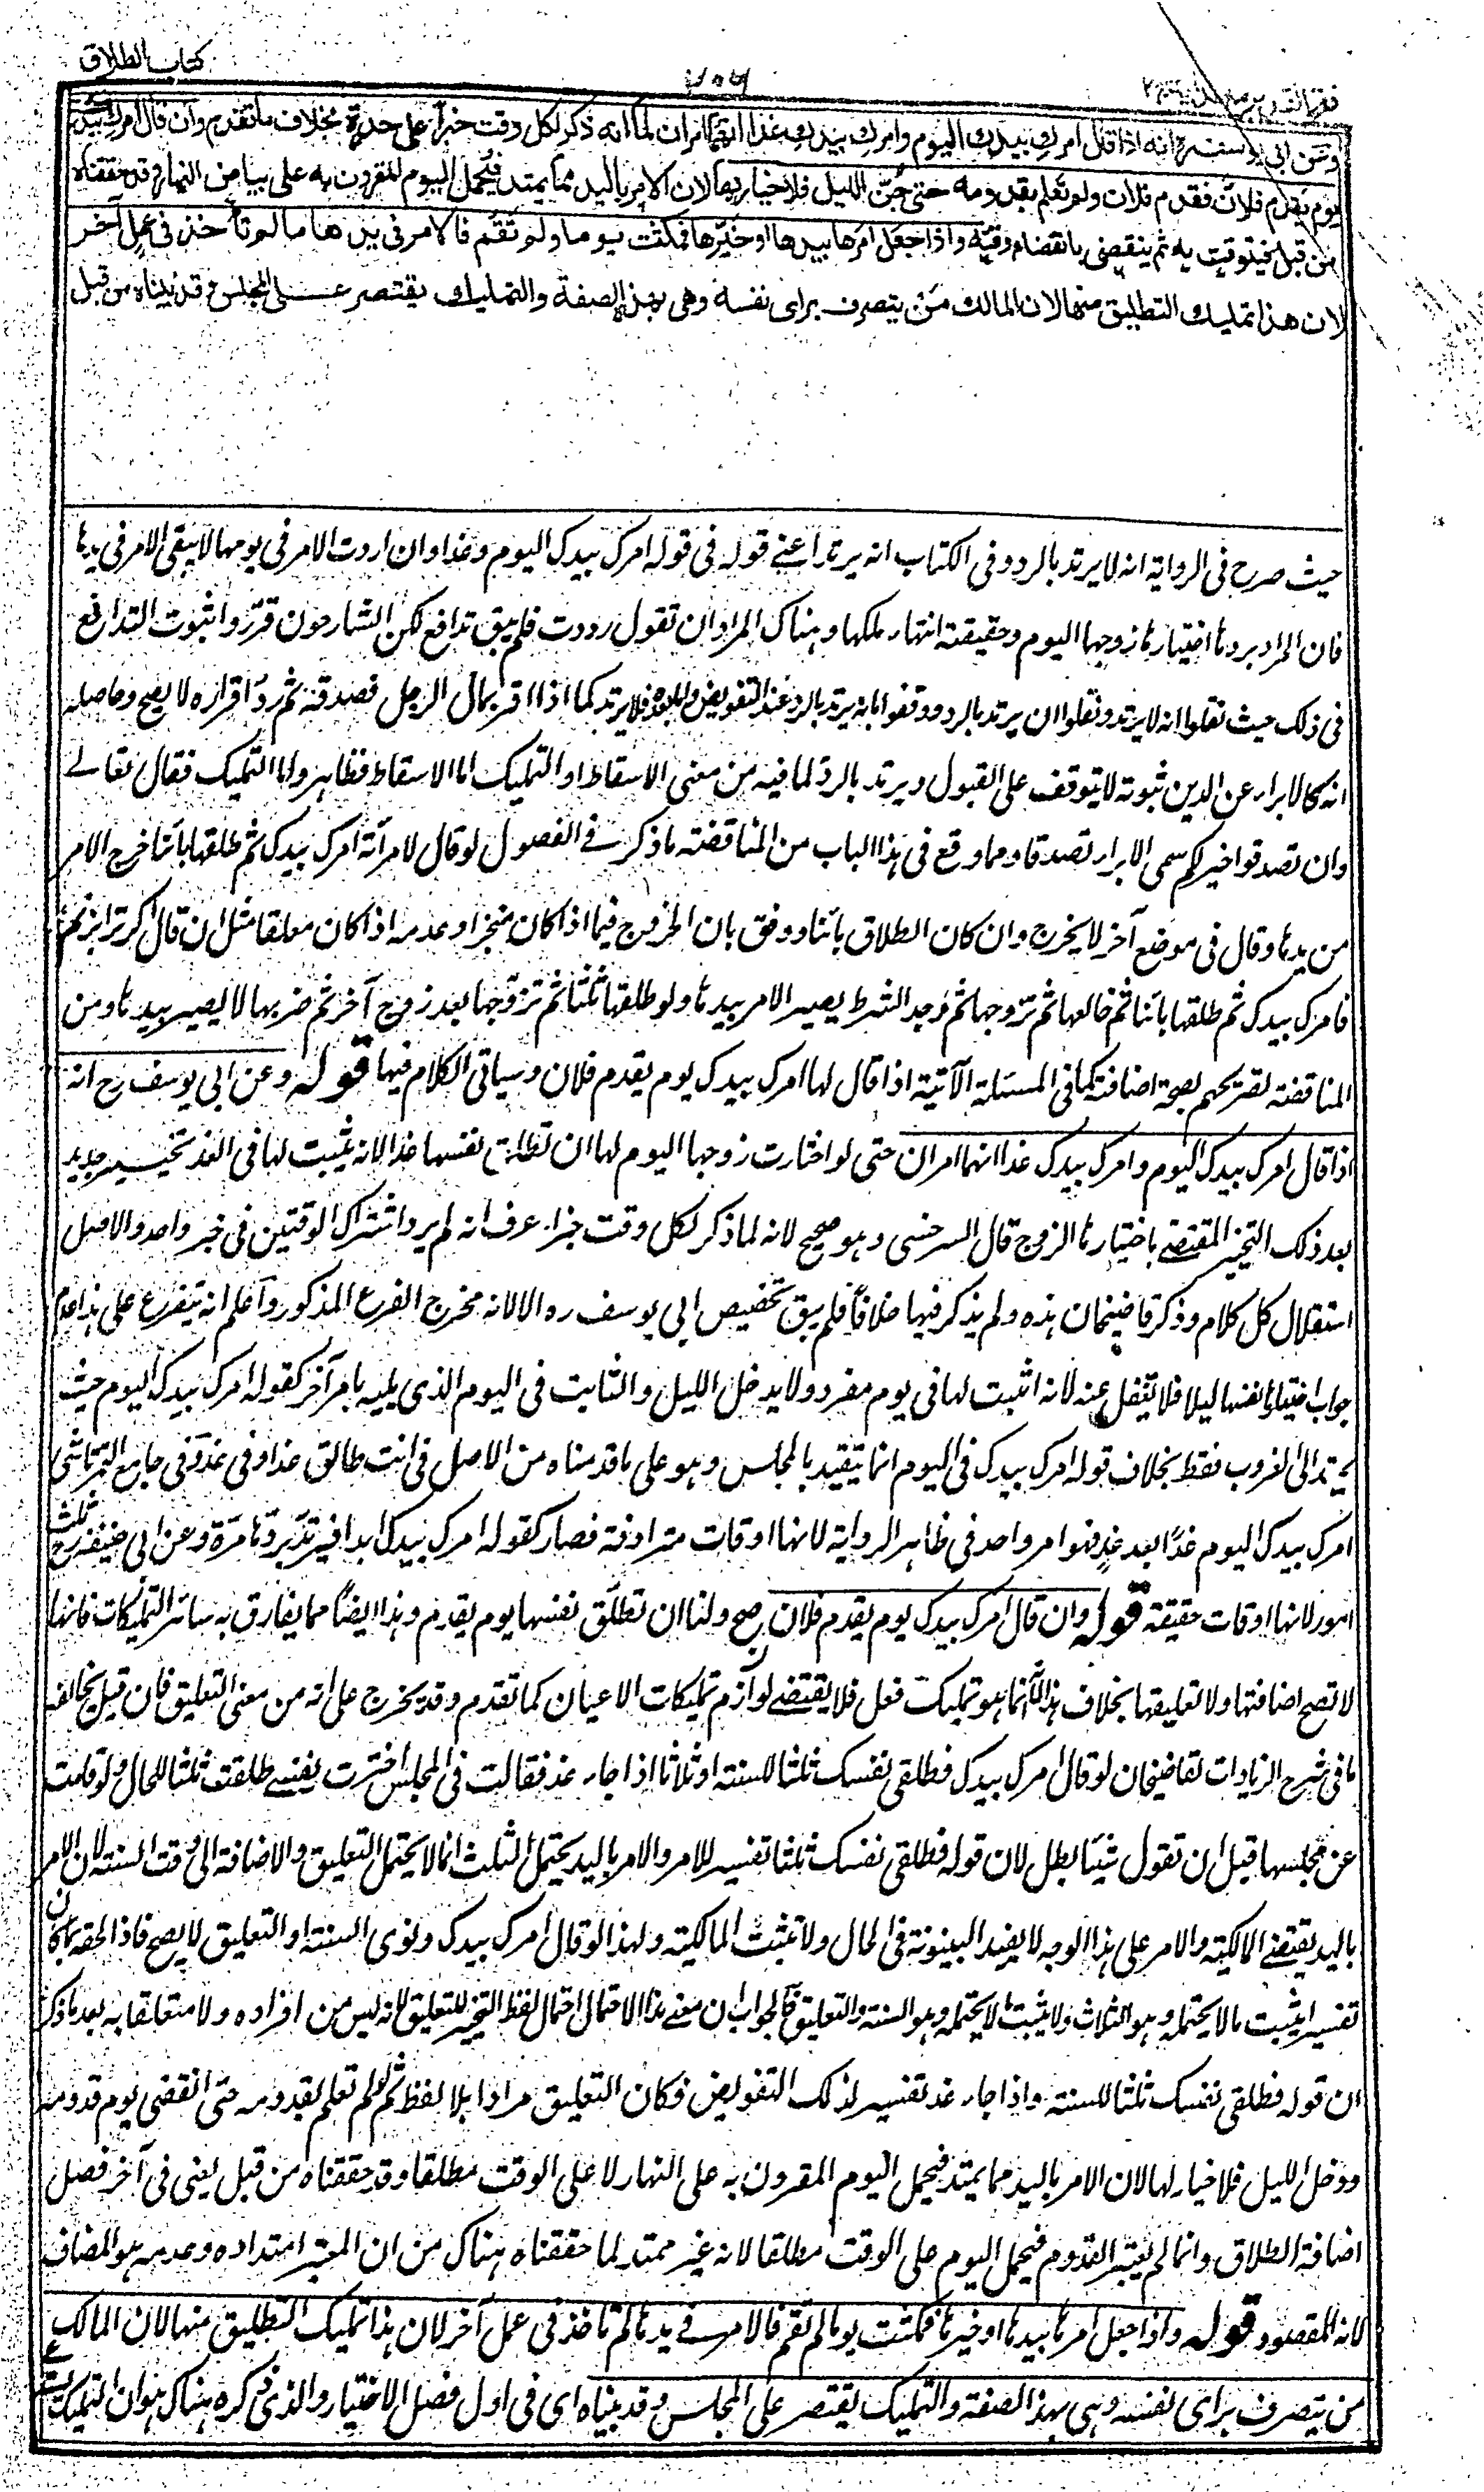 كتاب الطلاق
فتح القدير مع الهداية ج ٢
وعن ابي يوسف رح انه اذا قال امرك بيدك اليوم وامرك بيدك غدا انهما امران لما انه ذكر لكل وقت خبرا على حدة بخلاف ما تقدم وان قال امرك بيدك
يوم يقدم فلان فقدم فلان ولم تعلم بقدومه حتى جن الليل فلا خيار لها لان الامر باليد مما يمتد فيحمل اليوم المقرون به على بياض النهار وقد حققناه
من قبل فيتوقت به ثم ينقضي بانقضاء وقته واذا جعل امرها بيدها او خيرها فمكثت يوما ولم تقم فالامر في يدها ما لم تأخذ في عمل آخر
لان هذا تمليك التطليق منها لان المالك من يتصرف براى نفسه وهى بهذه الصفة والتمليك يقتصر على المجلس وقد بيناه من قبل
حيث صرح فى الرواية انه لا يرتد بالرد وفى الكتاب انه يرتد اعنے قوله فى قوله امرك بيدك اليوم وغدا وان اردت الامر فى يومها لا يبقى الامر فى يدها
فان المراد بردها اختيارها زوجها اليوم وحقيقته انتهاء ملكها وهناك المراد ان تقول رددت فلم يبق تدافع لكن الشارحون قرروا ثبوت التدافع
فى ذلك حيث نقلوا انه لا يرتد ونقلوا ان يرتد بالرد ووقفوا بانه يرتد بالرد عند التفويض واما بعده فلا يرتد كما اذا اقر بمال الرجل فصدقه ثم رد اقراره لا يصح وحاصله
انه كالابراء عن الدين ثبوته لا يتوقف على القبول ويرتد بالرد لما فيه من معنى الاسقاط او التمليك اما الاسقاط فظاهر واما التمليك فقال تعالے
وان تصدقوا خير لكم سمى الابراء تصدقا ومما وقع فى هذا الباب من المناقضة ما ذكر فے الفصول لو قال لامرأته امرك بيدك ثم طلقها بائنا خرج الامر
من يدها وقال فى موضع آخر لا يخرج وان كان الطلاق بائنا ووفق بان الخروج فيما اذا كان منجزا وعدمه اذا كان معلقا مثل ان قال اكر ترا بزنم
فامرك بيدك ثم طلقها بائنا ثم خالعها ثم تزوجها ثم وجد الشرط يصير الامر بيدها ولو طلقها ثلثا ثم تزوجها بعد زوج آخر ثم ضربها لا يصير بيدها ومن
المناقضة تصريحهم بصحة اضافته كما فى المسئلة الآتية اذا قال لها امرك بيدك يوم يقدم فلان وسياتى الكلام فيها قوله وعن ابى يوسف رح انه
اذا قال امرك بيدك اليوم وامرك بيدك غدا انهما امران حتى لو اختارت زوجها اليوم لها ان تطلق نفسها غدا لانه يثبت لها فى الغد تخيير جديد
بعد ذلك التخيير المقتضے باختيارها الزوج قال السرخسى وهو صحيح لانه لما ذكر لكل وقت خبرا عرف انه لم يرد اشتراك الوقتين فى خبر واحد والاصل
استقلال كل كلام وذكر قاضيخان هذه ولم يذكر فيها خلافا فلم يبق تخصيص ابى يوسف ره الا لانه مخرج الفرع المذكور واعلم انه يتفرع على هذا عدم
جواب اختيارها نفسها ليلا فلا تغفل عنه لانه اثبت لها فى يوم مفرد ولا يدخل الليل والثابت فى اليوم الذى يليه بامر آخر كقوله امرك بيدك اليوم حيث
يمتد الى الغروب فقط بخلاف قوله امرك بيدك فى اليوم انما يتقيد بالمجلس وهو على ما قدمناه من الاصل فى انت طالق غدا وفى غد وفى جامع التمرتاشى
امرك بيدك اليوم غدا بعد غد فهو امر واحد فى ظاهر الرواية لانها اوقات مترادفة فصار كقوله امرك بيدك ابدا فيرتد بردها مرة وعن ابى حنيفة رح ثلث
امور لانها اوقات حقيقة قوله وان قال امرك بيدك يوم يقدم فلان صح ولنا ان تطلق نفسها يوم يقدم وهذا ايضا مما يفارق به سائر التمليكات فانها
لا تصح اضافتها ولا تعليقها بخلاف هذا لانه انما هو تمليك فعل فلا يقتضے لوازم تمليكات الاعيان كما تقدم وقد يخرج على انه من معنى التعليق فان قيل يخالفه
ما فى شرح الزيادات لقاضيخان لو قال امرك بيدك فطلقى نفسك ثلثا للسنة او ثلاثا اذا جاء غد فقالت فى المجلس اخترت نفسے طلقت ثلثا للحال ولو قامت
عن مجلسها قبل ان تقول شيئا بطل لان قوله فطلقى نفسك ثلثا تفسير للامر والامر باليد يحتمل الثلث انما لا يحتمل التعليق والاضافة الى وقت السنة لان الامر
باليد يقتضے المالكية والامر على هذا الوجه لا يفيد البينونة فى الحال ولا تثبت المالكية ولهذا لو قال امرك بيدك ونوى السنة او التعليق لا يصح فاذا الحقه بها كان
تفسيرا يثبت ما لا يحتمله وهو الثلاث ولا يثبت ما لا يحتمله وهو السنة والتعليق فالجواب ان معنے هذا الاحتمال احتمال لفظ التخيير للتعليق لانه ليس من افراده ولا متعلقا به بعد ما ذكر
ان قوله فطلقى نفسك ثلثا للسنة واذا جاء غد تفسير لذلك التفويض فكان التعليق مرادا بلا لفظ ثم لو لم تعلم بقدومه حتى انقضى يوم قدومه
ودخل الليل فلا خيار لها لان الامر باليد مما يمتد فيحمل اليوم المقرون به على النهار لا على الوقت مطلقا وقد حققناه من قبل يعنى فى آخر فصل
اضافة الطلاق وانما لم يعتبر القدوم فيحمل اليوم على الوقت مطلقا لانه غير ممتد لما حققناه هناك من ان المعتبر امتداده وعدمه هو المضاف
لانه المقصود قوله واذا جعل امرها بيدها او خيرها فمكثت يوما لم تقم فالامر فے يدها ما لم تاخذ فى عمل آخر لان هذا تمليك التطليق منها لان المالك
من يتصرف براى نفسه وهى بهذه الصفة والتمليك يقتصر على المجلس وقد بيناه اى فى اول فصل الاختيار والذى ذكره هناك هو ان التمليك